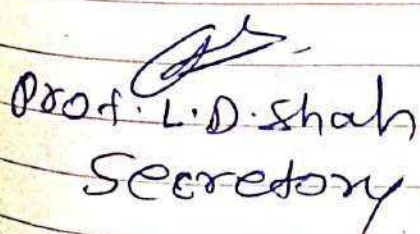 Prof. L.D. Shah
Secretory